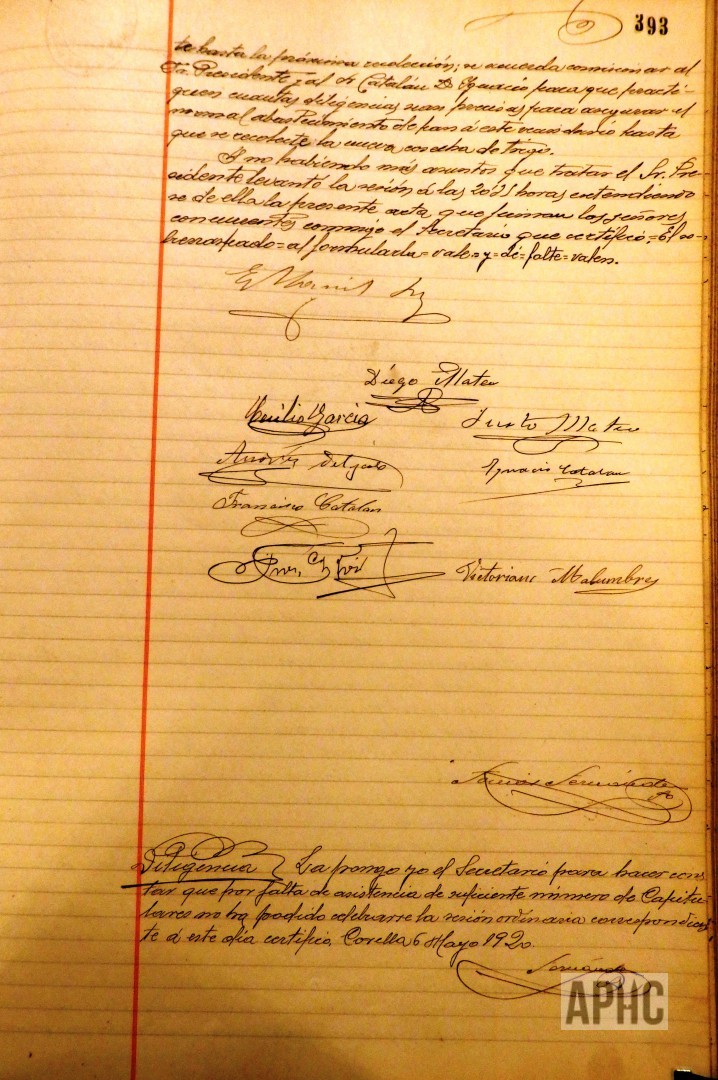 393
te hasta la próxima recolección; se acuerda comisionar al
Sr. Presidente y al Sr Catalán Dn Ignacio para que practi-
quen cuantas diligencias sean precisas para asegurar el
normal abastecimiento de pan á este vecindario hasta
que se recolecte la nueva cosecha de trigo.
Y no habiendo más asuntos que tratar el Sr. Pre-
sidente levantó la sesión á las horas extendiendo
se de ella la presente acta que firman los señores
concurrentes conmigo el Secretario que certifico.=El so-
brerraspado=al formularla=vale=y=dé=falte=valen.
Diego Mateo
Emilio García Justo Mateo
Andrés Delgado Ignacio Catalan
Francisco Catalan
Victoriano Malumbres
Diligencia La pongo yo el Secretario para hacer cons
tar que por falta de asistencia de suficiente número de Capitu-
lares no ha podido celebrarse la sesión ordinaria correspondien-
te á este día certifico. Corella 6 Mayo 1920.
APHC